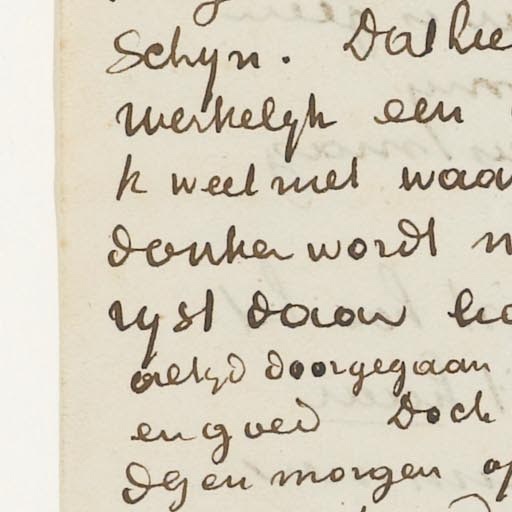 Schyn. Dat hie
werkelyk een
k weet niet waar
donker wordt
ryst daar
altyd doorgegaan
en goed Doch
dezen morgen op